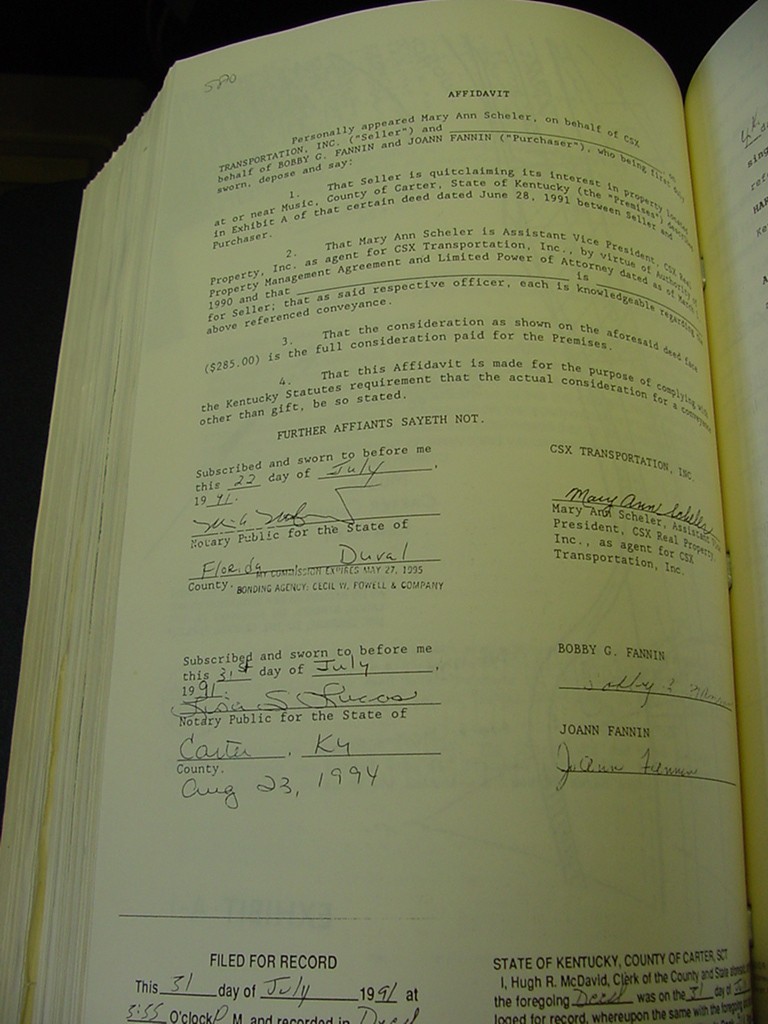 580
AFFIDAVIT
Personally appeared Mary Ann Scheler, on behalf of CSX
TRANSPORTATION, INC. ("Seller") and ____ on
behalf of BOBBY G. FANNIN and JOANN FANNIN ("Purchaser"), who being first duly
sworn, depose and say:
1. That Seller is quitclaiming its interest in property located
at or near Music, County of Carter, State of Kentucky (the "Premises") described
in Exhibit A of that certain deed dated June 28, 1991 between Seller and
Purchaser.
2. That Mary Ann Scheler is Assistant Vice President, CSX Real
Property, Inc. as agent for CSX Transportation, Inc., by virtue of Authority of
Property Management Agreement and Limited Power of Attorney dated as of March
1990 and that ____ is
for Seller; that as said respective officer, each is knowledgeable regarding the
above referenced conveyance.
3. That the consideration as shown on the aforesaid deed face
($285.00) is the full consideration paid for the Premises.
4. That this Affidavit is made for the purpose of complying with
the Kentucky Statutes requirement that the actual consideration for a conveyance
other than gift, be so stated.
FURTHER AFFIANTS SAYETH NOT.
Subscribed and sworn to before me
this 22 day of July,
1991.
Notary Public for the State of
Florida Duval
MY COMMISSION EXPIRES MAY 27, 1995
County. BONDING AGENCY: CECIL W. POWELL & COMPANY
CSX TRANSPORTATION, INC.
Mary Ann Scheler
Mary Ann Scheler, Assistant Vice
President, CSX Real Property,
Inc., as agent for CSX
Transportation, Inc.
Subscribed and sworn to before me
this 31st day of July,
1991.
Notary Public for the State of
Carter, Ky
County.
Aug 23, 1994
BOBBY G. FANNIN
Bobby G Fannin
JOANN FANNIN
JoAnn Fannin
FILED FOR RECORD
This 31 day of July 1991 at
3:55 O'clock P M. and recorded in Deed
STATE OF KENTUCKY, COUNTY OF CARTER, SCT
I, Hugh R. McDavid, Clerk of the County and State
the foregoing Deed was on the 31 day of
loged for record, whereupon the same with the foregoing